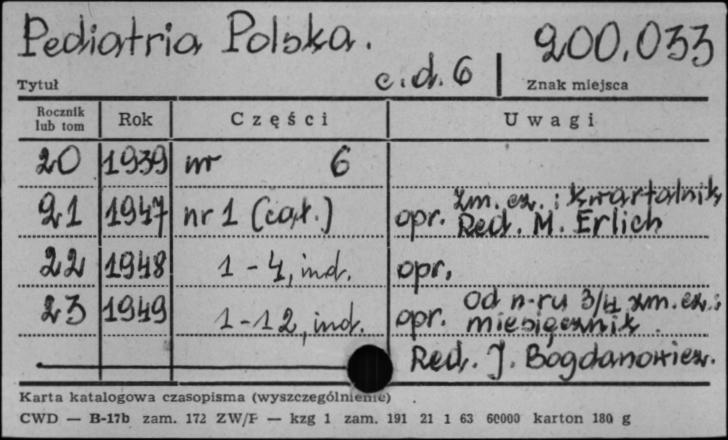 Pediatria Polska. 200.033
Tytuł c.d. 6 Znak miejsca
Rocznik lub tom Rok Części Uwagi
20 1939 nr 6
zm. cz.: kwartalnik
21 1947 nr 1 (cał.) opr. Red. M. Erlich
22 1948 1-4, ind. opr.
od n-ru 3/4 zm. cz.:
23 1949 1-12, ind. opr. miesięcznik.
Red. J. Bogdanowicz.
Karta katalogowa czasopisma (wyszczególnienie)
CWD — B-17b zam. 172 ZW/F — kzg 1 zam. 191 21 1 63 60000 karton 180 g